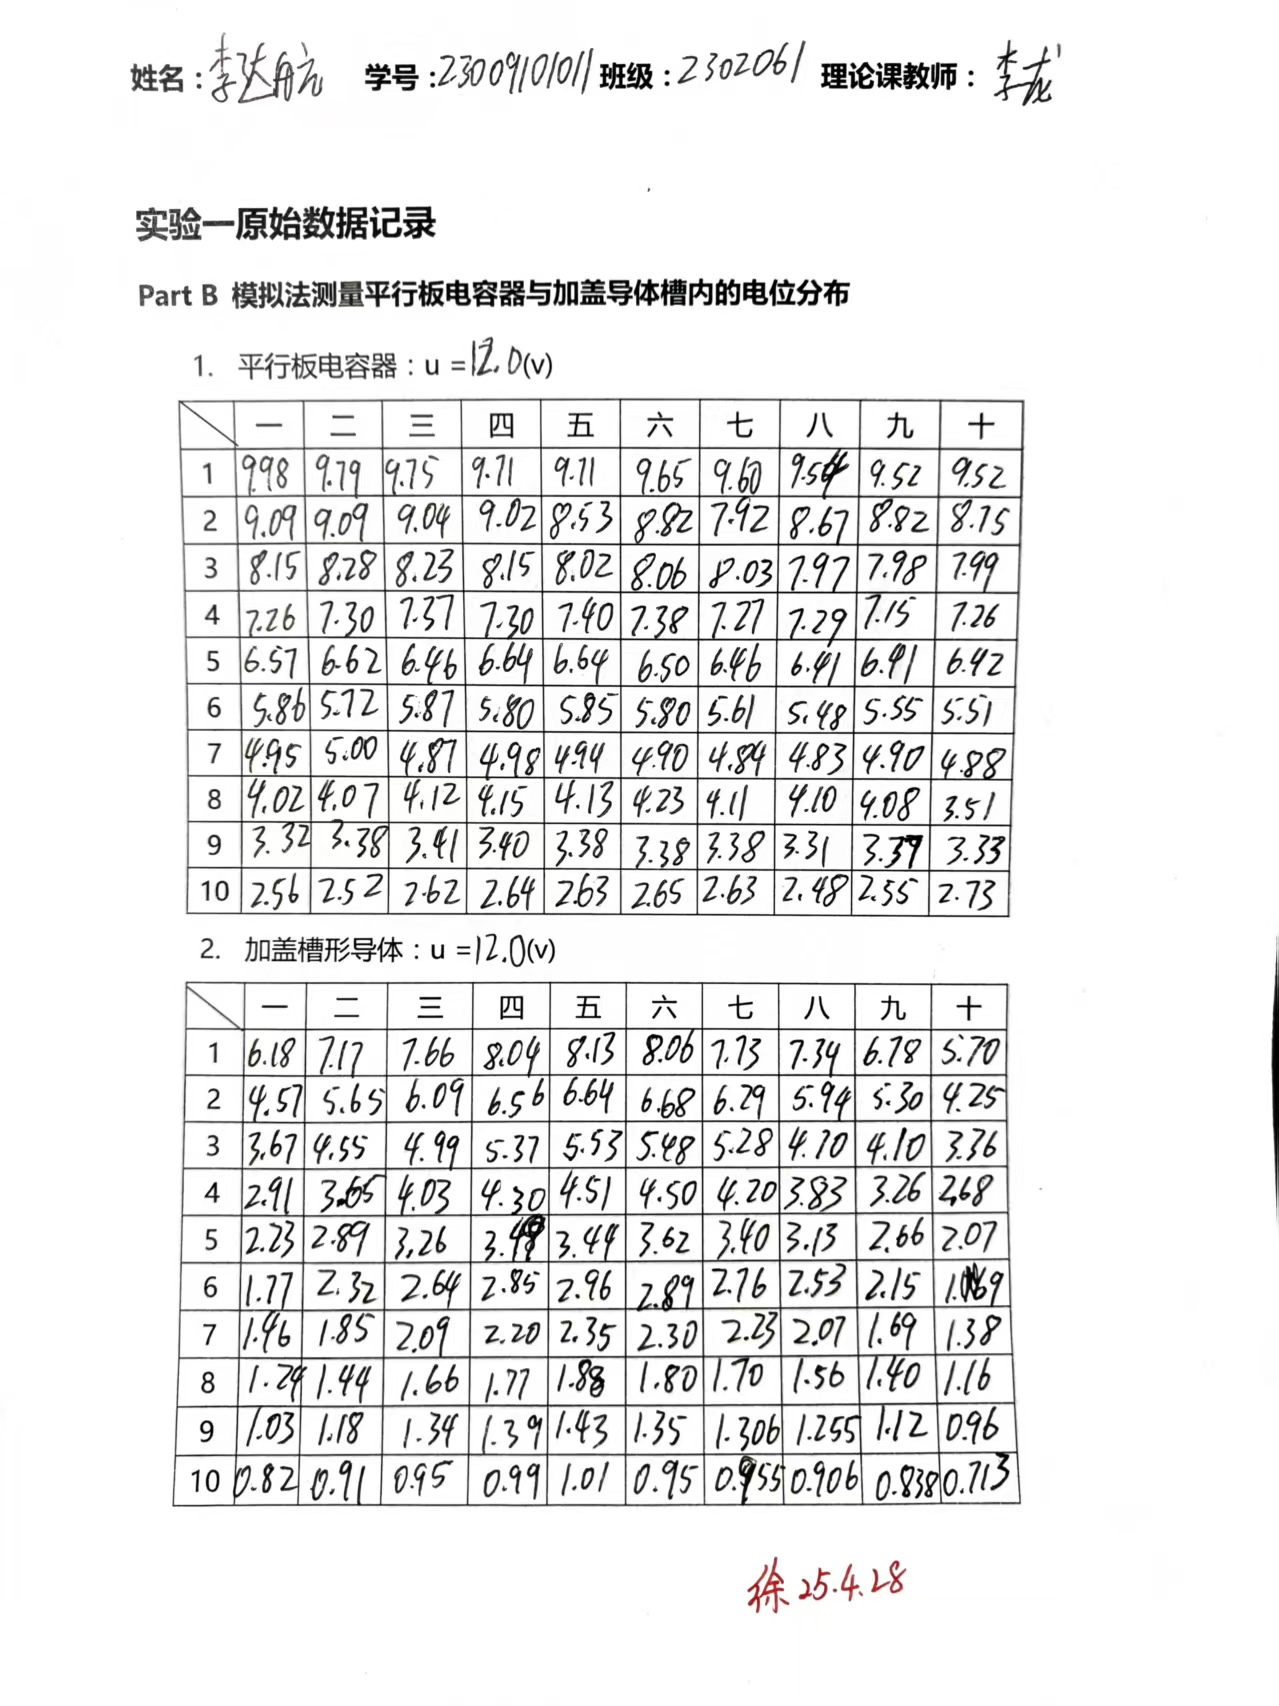 姓名：李达航 学号：23009101011 班级：2302061 理论课教师：李龙
实验一原始数据记录
Part B 模拟法测量平行板电容器与加盖导体槽内的电位分布
1. 平行板电容器：u =12.0(v)
一 二 三 四 五 六 七 八 九 十
1 9.98 9.79 9.75 9.71 9.71 9.65 9.60 9.54 9.52 9.52
2 9.09 9.09 9.04 9.02 8.53 8.82 7.92 8.67 8.82 8.75
3 8.15 8.28 8.23 8.15 8.02 8.06 8.03 7.97 7.98 7.99
4 7.26 7.30 7.37 7.30 7.40 7.38 7.27 7.29 7.15 7.26
5 6.57 6.62 6.46 6.64 6.64 6.50 6.46 6.41 6.41 6.42
6 5.86 5.72 5.87 5.80 5.85 5.80 5.61 5.48 5.55 5.51
7 4.95 5.00 4.87 4.98 4.94 4.90 4.84 4.83 4.90 4.88
8 4.02 4.07 4.12 4.15 4.13 4.23 4.11 4.10 4.08 3.51
9 3.32 3.38 3.41 3.40 3.38 3.38 3.38 3.31 3.39 3.33
10 2.56 2.52 2.62 2.64 2.63 2.65 2.63 2.48 2.55 2.73
2. 加盖槽形导体：u =12.0(v)
一 二 三 四 五 六 七 八 九 十
1 6.18 7.17 7.66 8.04 8.13 8.06 7.73 7.34 6.78 5.70
2 4.57 5.65 6.09 6.56 6.64 6.68 6.29 5.94 5.30 4.25
3 3.67 4.55 4.99 5.37 5.53 5.48 5.28 4.70 4.10 3.36
4 2.91 3.65 4.03 4.30 4.51 4.50 4.20 3.83 3.26 2.68
5 2.23 2.89 3.26 3.44 3.62 3.40 3.13 2.66 2.07
6 1.77 2.32 2.64 2.85 2.96 2.89 2.76 2.53 2.15
7 1.46 1.85 2.09 2.20 2.35 2.30 2.23 2.07 1.69 1.38
8 1.24 1.44 1.66 1.77 1.88 1.80 1.70 1.56 1.40 1.16
9 1.03 1.18 1.34 1.39 1.43 1.35 1.306 1.255 1.12 0.96
10 0.82 0.91 0.95 0.99 1.01 0.95 0.955 0.906 0.838 0.713
徐 25.4.28